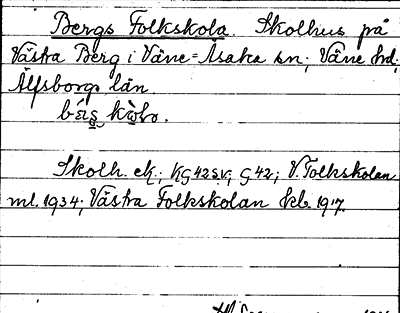 Bergs Folkskola. Skolhus på
Västra Berg i Väne-Åsaka sn; Väne hd;
Älfsborgs län.
Skolh. ek.; KG 42 s.v; G 42; V. Folkskolan
ml. 1934; Västra Folkskolan Skb. 1917.